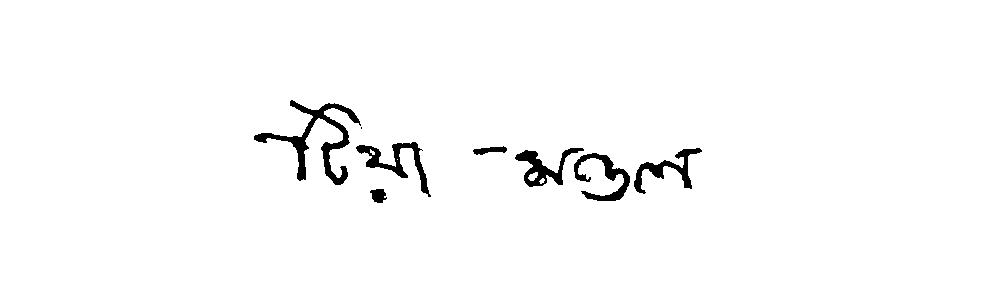 টিয়া মণ্ডল